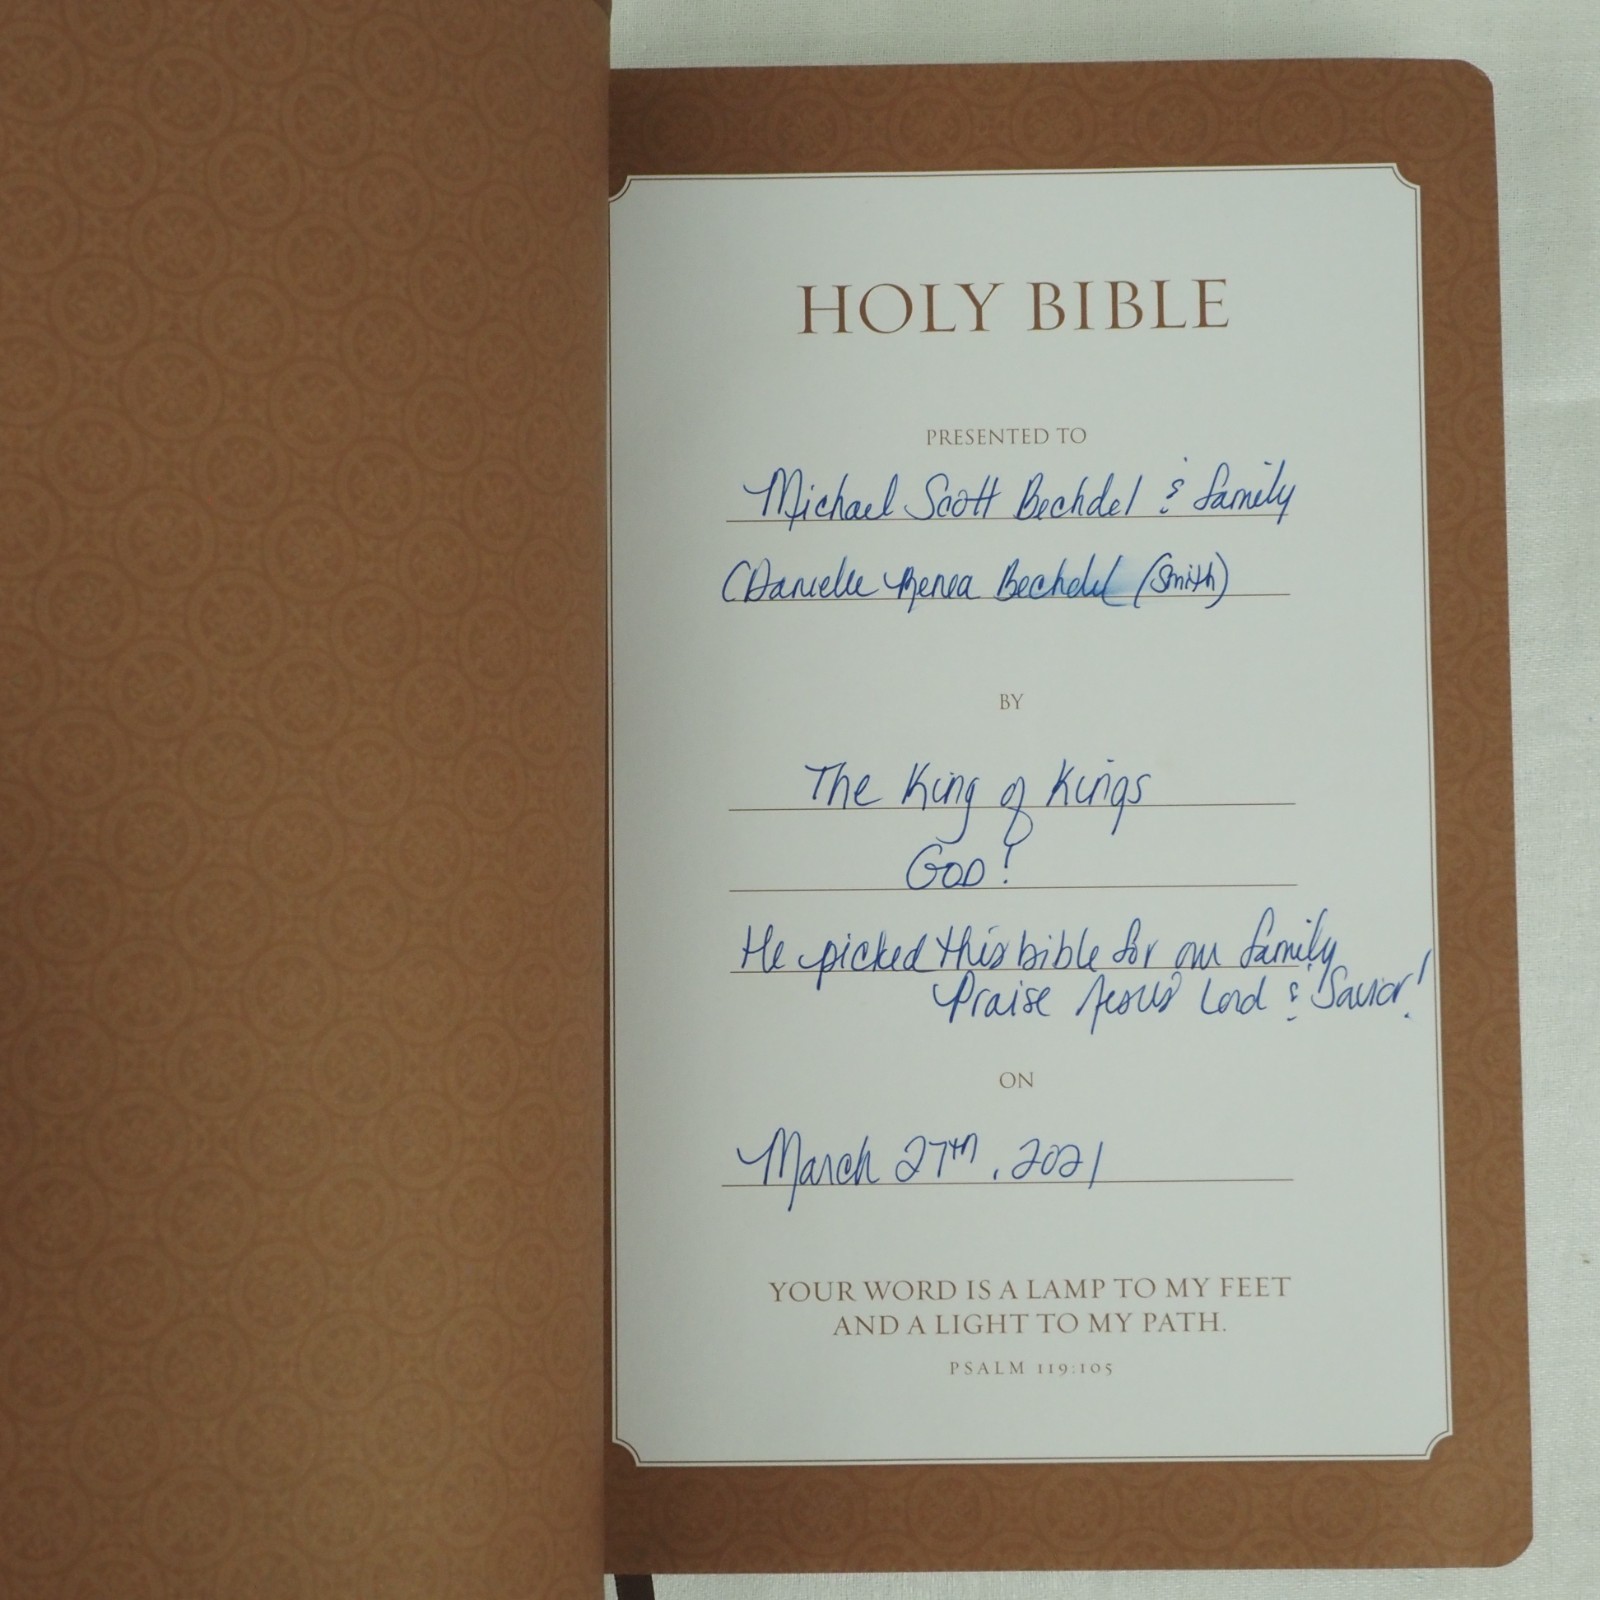 HOLY BIBLE
PRESENTED TO
Michael Scott Bechdel & family
(Danielle Renea Bechdel (Smith)
BY
The King of Kings
GOD!
He picked this bible for our family
Praise Jesus Lord & Savior!
ON
March 27th, 2021
YOUR WORD IS A LAMP TO MY FEET
AND A LIGHT TO MY PATH.
PSALM 119:105